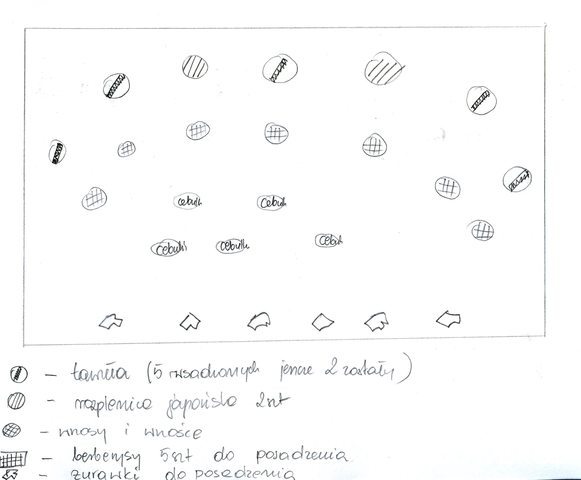 cebulk cebulk
cebulki cebulk cebul
- tawuła (5 wsadzonych jeszcze 2 zostały)
- rozplenica japońska 2szt
- wrzosy i wrzośce
- berberysy 5szt do posadzenia
- żurawki do posadzenia